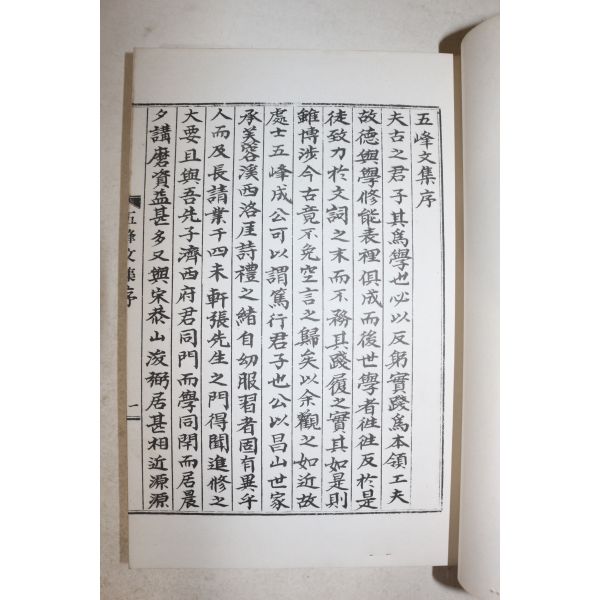 五峰文集序
夫古之君子其爲學也必以反躬實踐爲本領工夫
故德與學修能表裡俱成而後世學者徃徃反於是
徒致力於文詞之末而不務其踐履之實其如是則
雖博涉今古竟不免空言之歸矣以余觀之如近故
處士五峰成公可以謂篤行君子也公以昌山世家
承芙蓉溪西洛厓詩禮之緖自幼服習者固有異乎
人而及長請業于四未軒張先生之門得聞進修之
大要且與吾先子濟西府君同門而學同閈而居晨
夕講磨資益甚多又與宋恭山浚弼居甚相近源源
五峰文集序
一